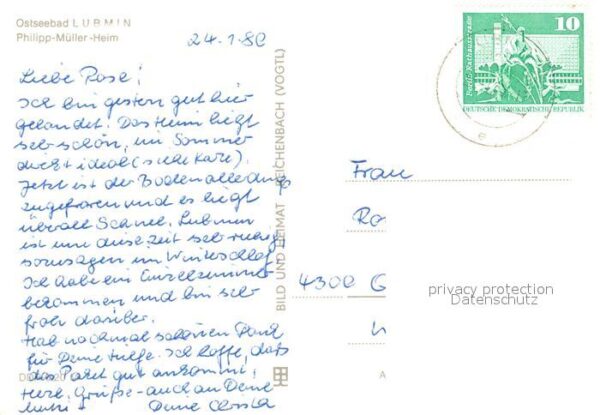 Ostseebad LUBMIN
Philipp-Müller-Heim
24.1.80
Liebe Rose!
Ich bin gestern gut hier
gelandet. Das Heim liegt
sehr schön, im Sommer
direkt ideal (siehe Karte).
Jetzt ist der Boden allerdings
zugefroren und es liegt
überall Schnee. Lubmin
ist um diese Zeit sehr ruhig
sozusagen im Winterschlaf
Ich habe ein Einzelzimmer
bekommen und bin sehr
froh darüber.
Hab nochmal schönen Dank
für Deine Hilfe. Ich hoffe, daß
das Paket gut ankommt.
Herzl. Grüße - auch an Deine
Mutti - Deine
BILD UND HEIMAT REICHENBACH (VOGTL)
10
Berlin Rathausstraße
DEUTSCHE DEMOKRATISCHE REPUBLIK
Frau
Ro
4300 G
privacy protection
Datenschutz
A